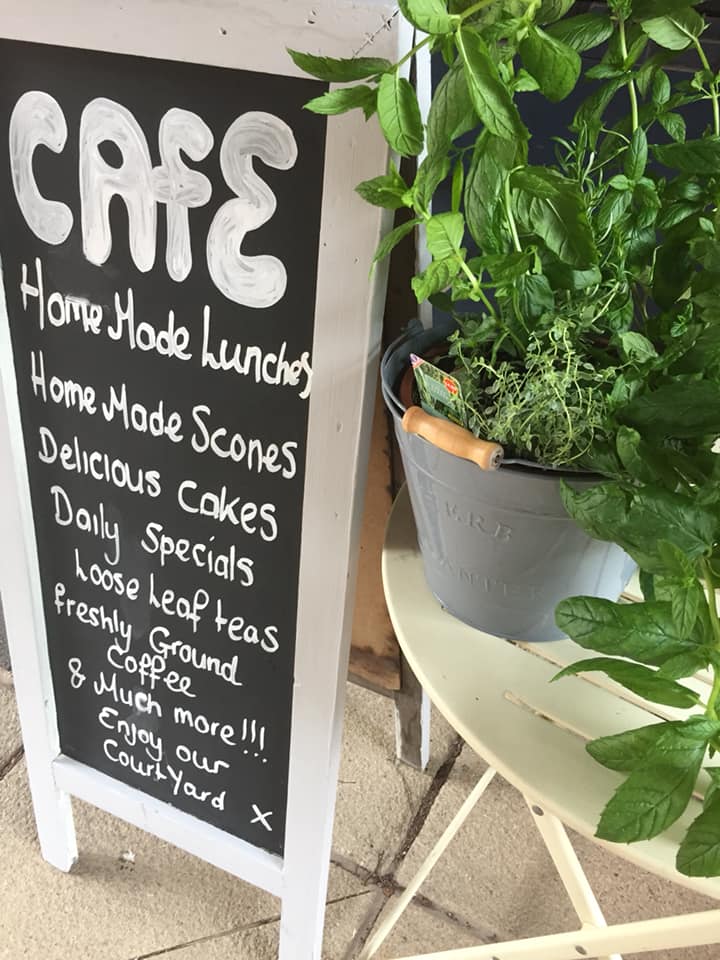 CAfE
Home Made Lunches
Home Made Scones
Delicious Cakes
Daily Specials
Loose Leaf teas
freshly Ground
Coffee
& Much more!!!
Enjoy our
CourtYard X